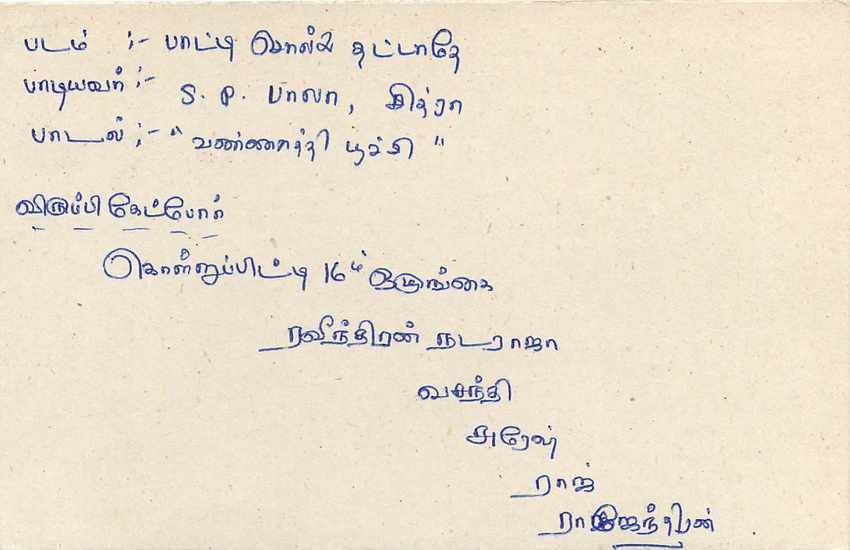 படம் :- பாட்டி சொல்லை தட்டாதே
பாடியவர் :- S. P. பாலா, சித்ரா
பாடல் :- "வண்ணாத்தி பூச்சி"
விரும்பி கேட்போர்
கொள்ளுப்பிட்டி 16ம் ஒழுங்கை
ரவீந்திரன் நடராஜா
வசந்தி
சுரேஷ்
ராஜ்
ராஜேந்திரன்